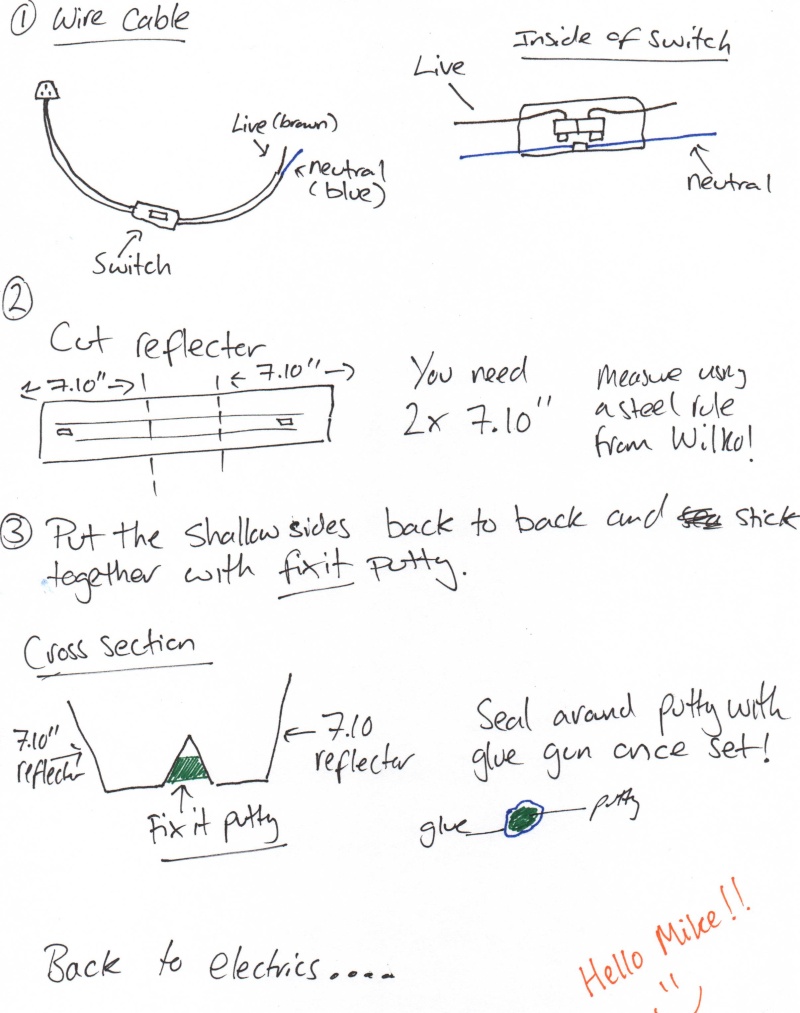 ① Wire Cable
Live (brown)
neutral
(blue)
Switch
Inside of Switch
Live
neutral
②
Cut reflecter
7.10"
7.10"
You need
2x 7.10"
Measure using
a steel rule
from Wilko!
③ Put the shallow sides back to back and stick
together with fixit putty.
Cross section
7.10"
reflecter
7.10
reflecter
Fix it putty
Seal around putty with
glue gun once set!
glue
putty
Back to electrics....
Hello Mike!!